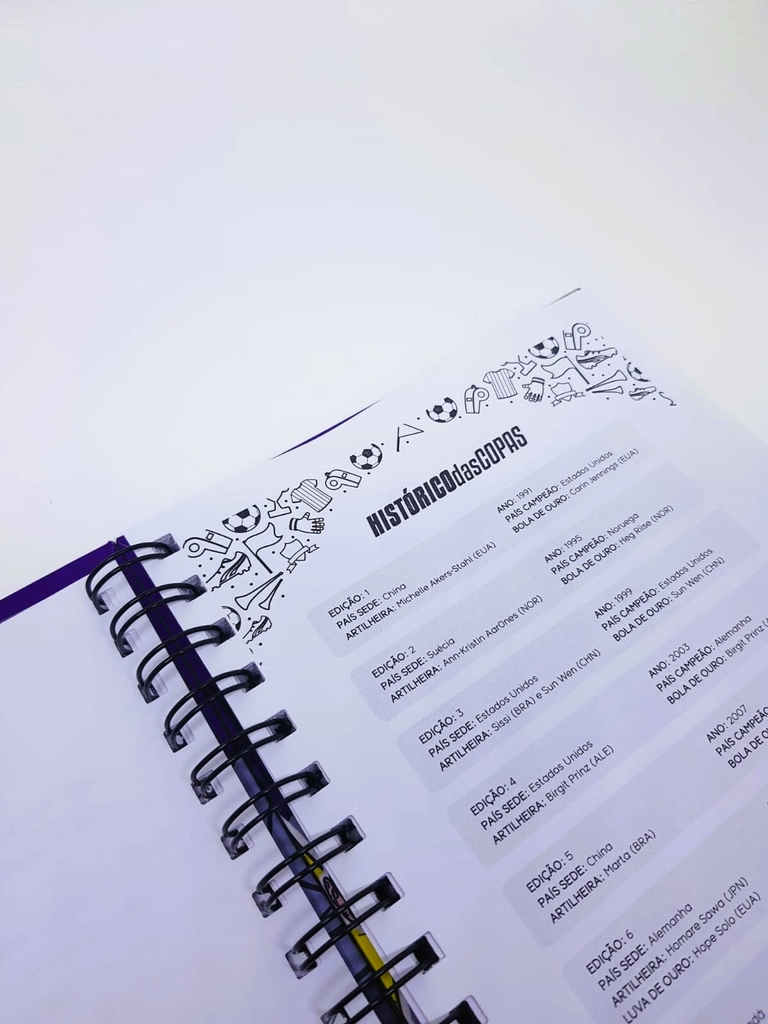 HISTÓRICOdasCOPAS
EDIÇÃO: 1
PAÍS SEDE: China
ARTILHEIRA: Michelle Akers-Stahl (EUA)
ANO: 1991
PAÍS CAMPEÃO: Estados Unidos
BOLA DE OURO: Carin Jennings (EUA)
EDIÇÃO: 2
PAÍS SEDE: Suécia
ARTILHEIRA: Ann-Kristin AarOnes (NOR)
ANO: 1995
PAÍS CAMPEÃO: Noruega
BOLA DE OURO: Heg Riise (NOR)
EDIÇÃO: 3
PAÍS SEDE: Estados Unidos
ARTILHEIRA: Sissi (BRA) e Sun Wen (CHN)
ANO: 1999
PAÍS CAMPEÃO: Estados Unidos
BOLA DE OURO: Sun Wen (CHN)
EDIÇÃO: 4
PAÍS SEDE: Estados Unidos
ARTILHEIRA: Birgit Prinz (ALE)
ANO: 2003
PAÍS CAMPEÃO: Alemanha
BOLA DE OURO: Birgit Prinz
EDIÇÃO: 5
PAÍS SEDE: China
ARTILHEIRA: Marta (BRA)
ANO: 2007
PAÍS
BOLA DE
EDIÇÃO: 6
PAÍS SEDE: Alemanha
ARTILHEIRA: Homare Sawa (JPN)
LUVA DE OURO: Hope Solo (EUA)